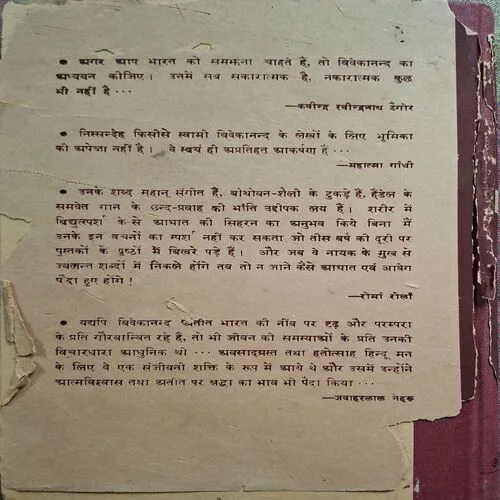 • अगर आप भारत को समझना चाहते हैं, तो विवेकानन्द का
अध्ययन कीजिए। उनमें सब सकारात्मक है, नकारात्मक कुछ
भी नहीं है ···
—कवीन्द्र रवीन्द्रनाथ टैगोर
• निस्सन्देह किसीसे स्वामी विवेकानन्द के लेखों के लिए भूमिका
की अपेक्षा नहीं है। वे स्वयं ही अप्रतिहत आकर्षण हैं ···
—महात्मा गांधी
• उनके शब्द महान् संगीत हैं, बीथोवन-शैली के टुकड़े हैं, हैंडेल के
समवेत गान के छन्द-प्रवाह की भाँति उद्दीपक लय हैं। शरीर में
विद्युत्स्पर्श के-से आघात की सिहरन का अनुभव किये बिना मैं
उनके इन वचनों का स्पर्श नहीं कर सकता जो तीस वर्ष की दूरी पर
पुस्तकों के पृष्ठों में बिखरे पड़े हैं। और जब वे नायक के मुख से
ज्वलन्त शब्दों में निकले होंगे तब तो न जाने कैसे आघात एवं आवेग
पैदा हुए होंगे!
—रोमाँ रोलाँ
• यद्यपि विवेकानन्द अतीत भारत की नींव पर दृढ़ और परम्परा
के प्रति गौरवान्वित रहे हैं, तो भी जीवन की समस्याओं के प्रति उनकी
विचारधारा आधुनिक थी ··· अवसादग्रस्त तथा हतोत्साह हिन्दू मन
के लिए वे एक संजीवनी शक्ति के रूप में आये थे और उसमें उन्होंने
आत्मविश्वास तथा अतीत पर श्रद्धा का भाव भी पैदा किया ···
—जवाहरलाल नेहरू